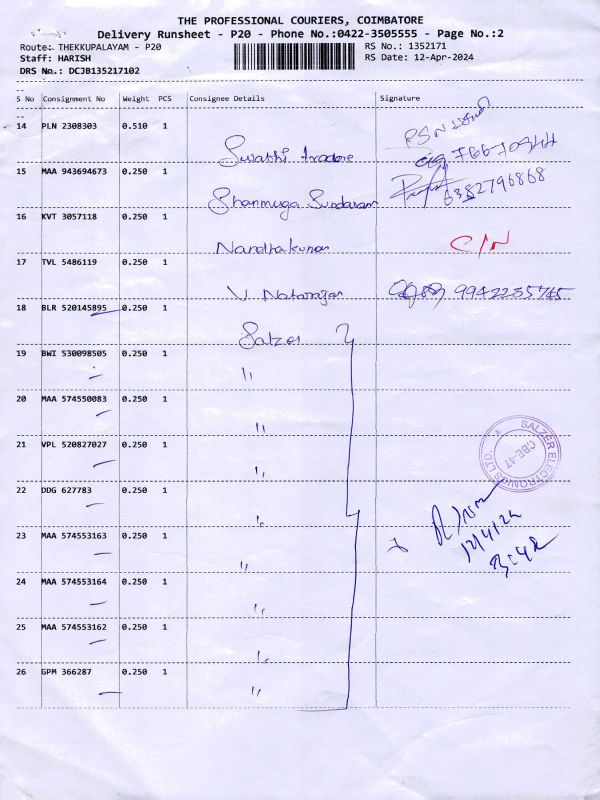 THE PROFESSIONAL COURIERS, COIMBATORE
Delivery Runsheet - P20 - Phone No.:0422-3505555 - Page No.:2
Route: THEKKUPALAYAM - P20 RS No.: 1352171
Staff: HARISH RS Date: 12-Apr-2024
DRS No.: DCJB135217102
S No Consignment No Weight PCS Consignee Details Signature
14 PLN 2308303 0.510 1 Swathi tradore
15 MAA 943694673 0.250 1 Shanmuga Sundaram 6382796868
16 KVT 3057118 0.250 1 Nandhakumar C/N
17 TVL 5486119 0.250 1 V. Natarajan 9942255765
18 BLR 520145895 0.250 1 Salzer
19 BWI 530098505 0.250 1 "
20 MAA 574550083 0.250 1 "
21 VPL 520827027 0.250 1 "
22 DDG 627783 0.250 1 "
23 MAA 574553163 0.250 1 "
24 MAA 574553164 0.250 1 "
25 MAA 574553162 0.250 1 "
26 GPM 366287 0.250 1 "
SALZER ELECTRONICS LTD.
CBE-47
12/4/24